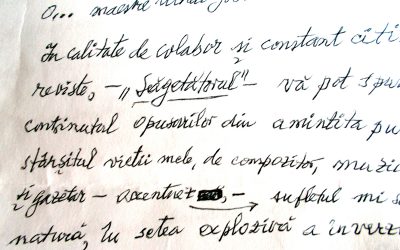 O... maestre
În calitate de colabor și constant citi
reviste, – „Săgetătorul" – vă pot spu
conținutul opusurilor din amintita pu
sfârșitul vieții mele, de compozitor, muzic
și gazetar – , – sufletul mi s
natură, în setea explozivă a inverzi